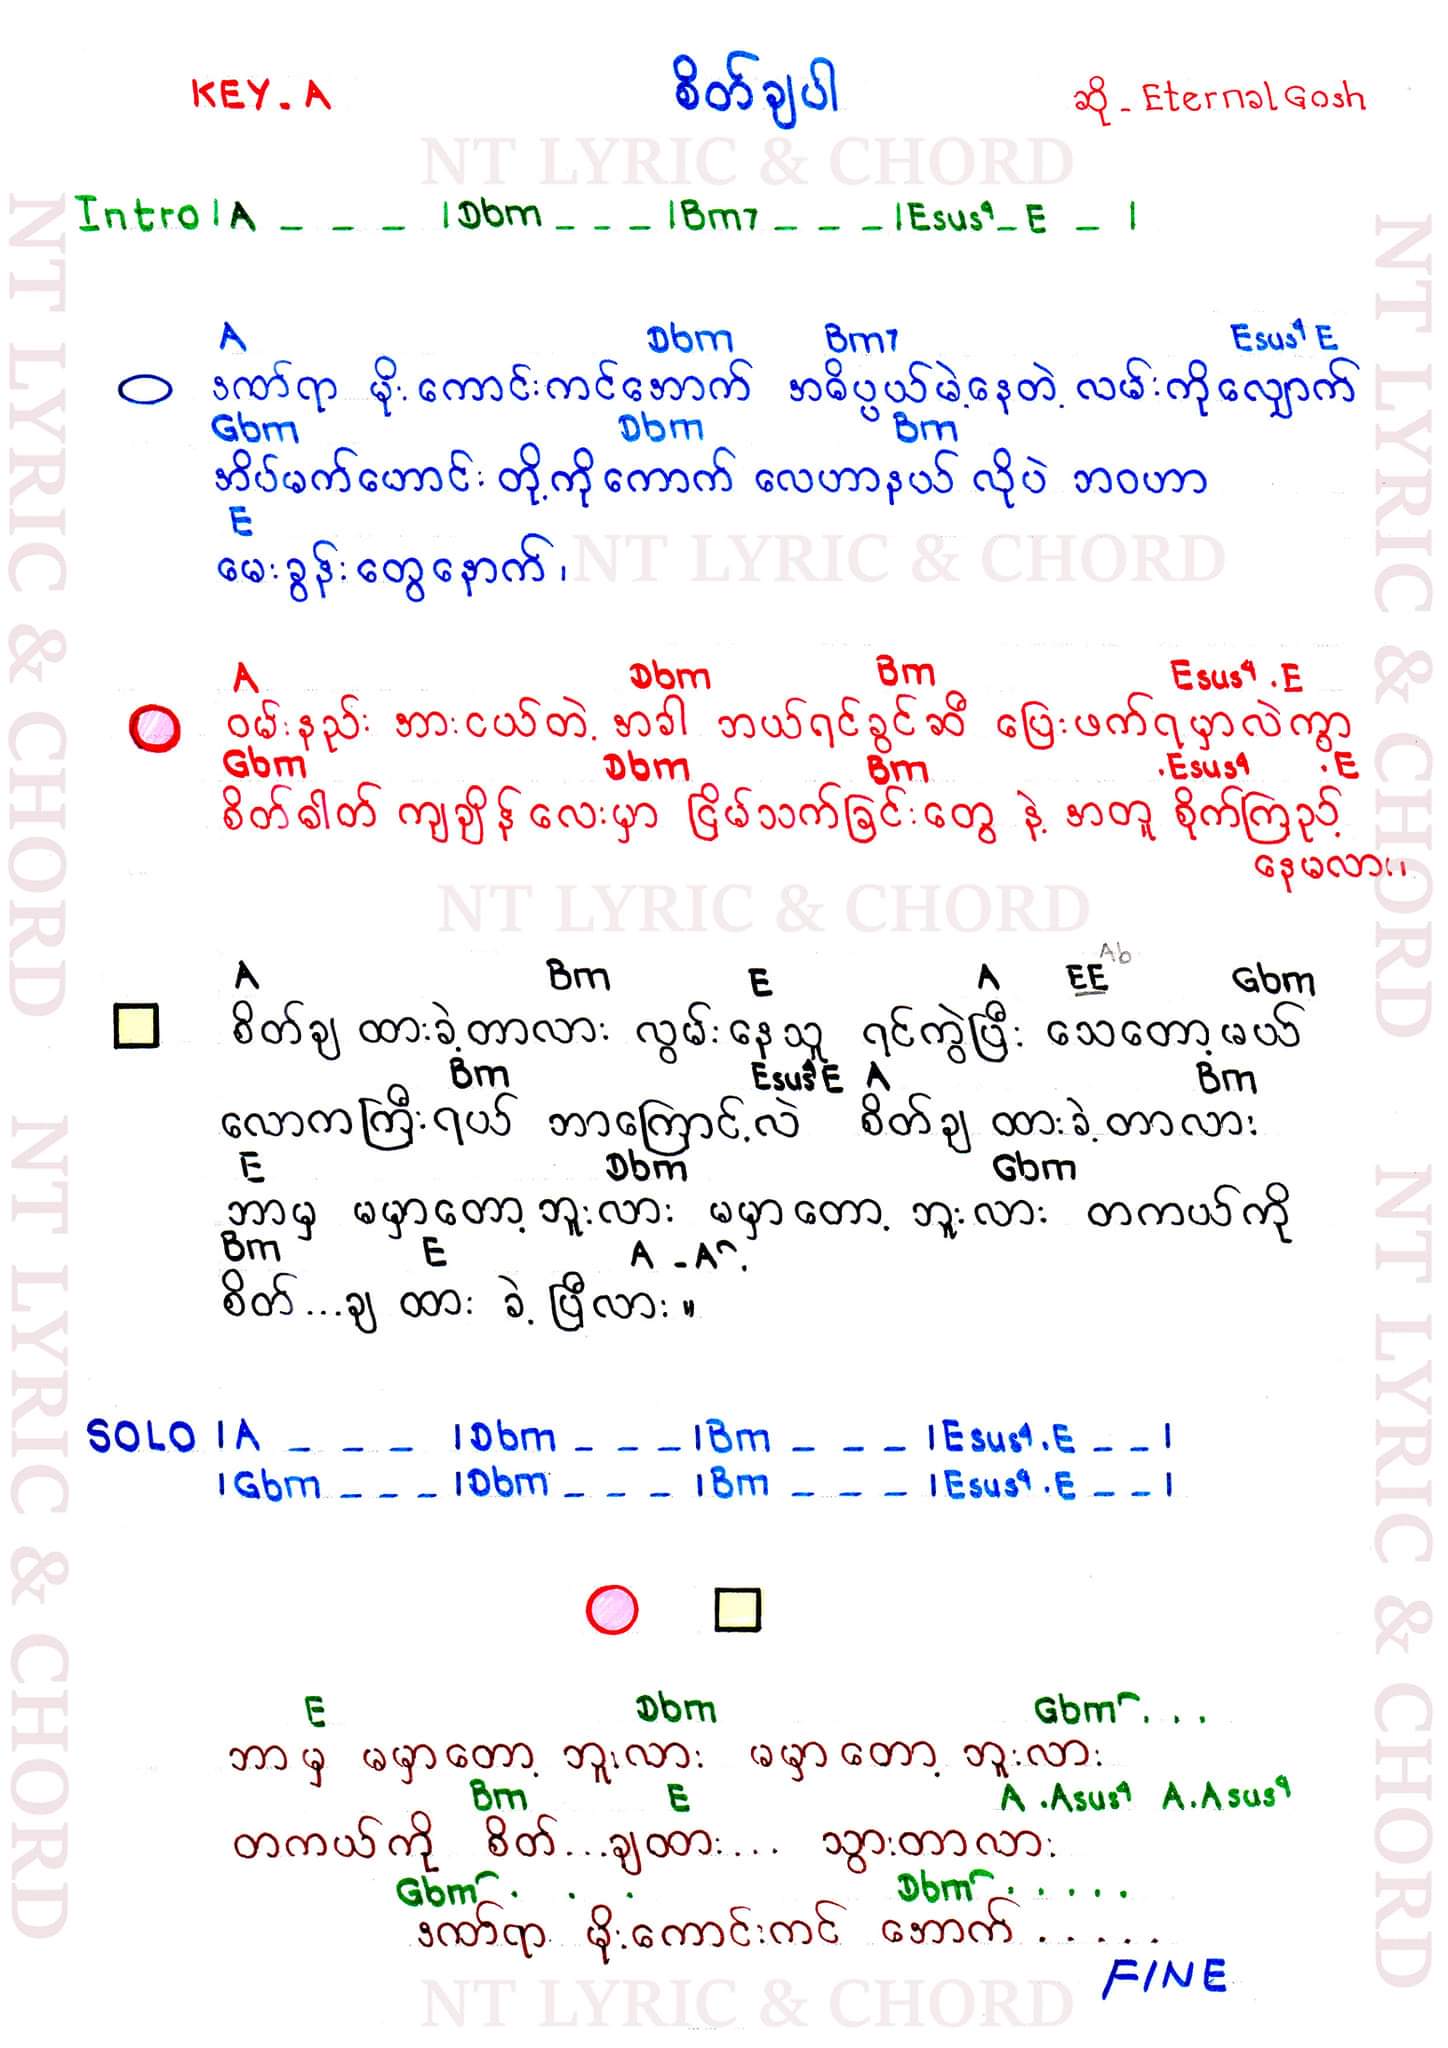 KEY. A
စိတ်ချပါ
ဆို - Eternal Gosh
NT LYRIC & CHORD
Intro |A _ _ _ |Dbm _ _ _ |Bm7 _ _ _ |Esus4 _ E _ |
A Dbm Bm7 Esus4 E
ဒဏ်ရာ မိုးကောင်းကင်အောက် အဓိပ္ပယ်မဲ့နေတဲ့ လမ်းကိုလျှောက်
Gbm Dbm Bm
အိပ်မက်ဟောင်း တို့ကိုကောက် လေဟာနယ် လိုပဲ ဘဝဟာ
E
မေးခွန်းတွေနောက်၊
NT LYRIC & CHORD
A Dbm Bm Esus4 . E
ဝမ်းနည်း အားငယ်တဲ့ အခါ ဘယ်ရင်ခွင်ဆီ ပြေးဖက်ရမှာလဲကွာ
Gbm Dbm Bm .Esus4 .E
စိတ်ဓါတ် ကျချိန်လေးမှာ ငြိမ်သက်ခြင်းတွေ နဲ့ အတူ စိုက်ကြည့်
နေမလား၊၊
NT LYRIC & CHORD
A Bm E A EE Ab Gbm
စိတ်ချ ထားခဲ့တာလား လွမ်းနေသူ ရင်ကွဲပြီး သေတော့မယ်
Bm Esus4 E A Bm
လောကကြီးရယ် ဘာကြောင့်လဲ စိတ်ချ ထားခဲ့တာလား
E Dbm Gbm
ဘာမှ မမှာတော့ဘူးလား မမှာတော့ ဘူးလား တကယ်ကို
Bm E A - A .
စိတ်...ချ ထား ခဲ့ ပြီလား ။
SOLO |A _ _ _ |Dbm _ _ _ |Bm _ _ _ |Esus4 . E _ _ |
|Gbm _ _ _ |Dbm _ _ _ |Bm _ _ _ |Esus4 . E _ _ |
E Dbm Gbm . . .
ဘာမှ မမှာတော့ ဘူးလား မမှာတော့ ဘူးလား
Bm E A .Asus4 A.Asus4
တကယ်ကို စိတ်...ချထား... သွားတာလား
Gbm . . . Dbm . . . . .
ဒဏ်ရာ မိုးကောင်းကင် အောက် . . . . .
FINE
NT LYRIC & CHORD
NT LYRIC & CHORD
NT LYRIC & CHORD
NT LYRIC & CHORD
NT LYRIC & CHORD